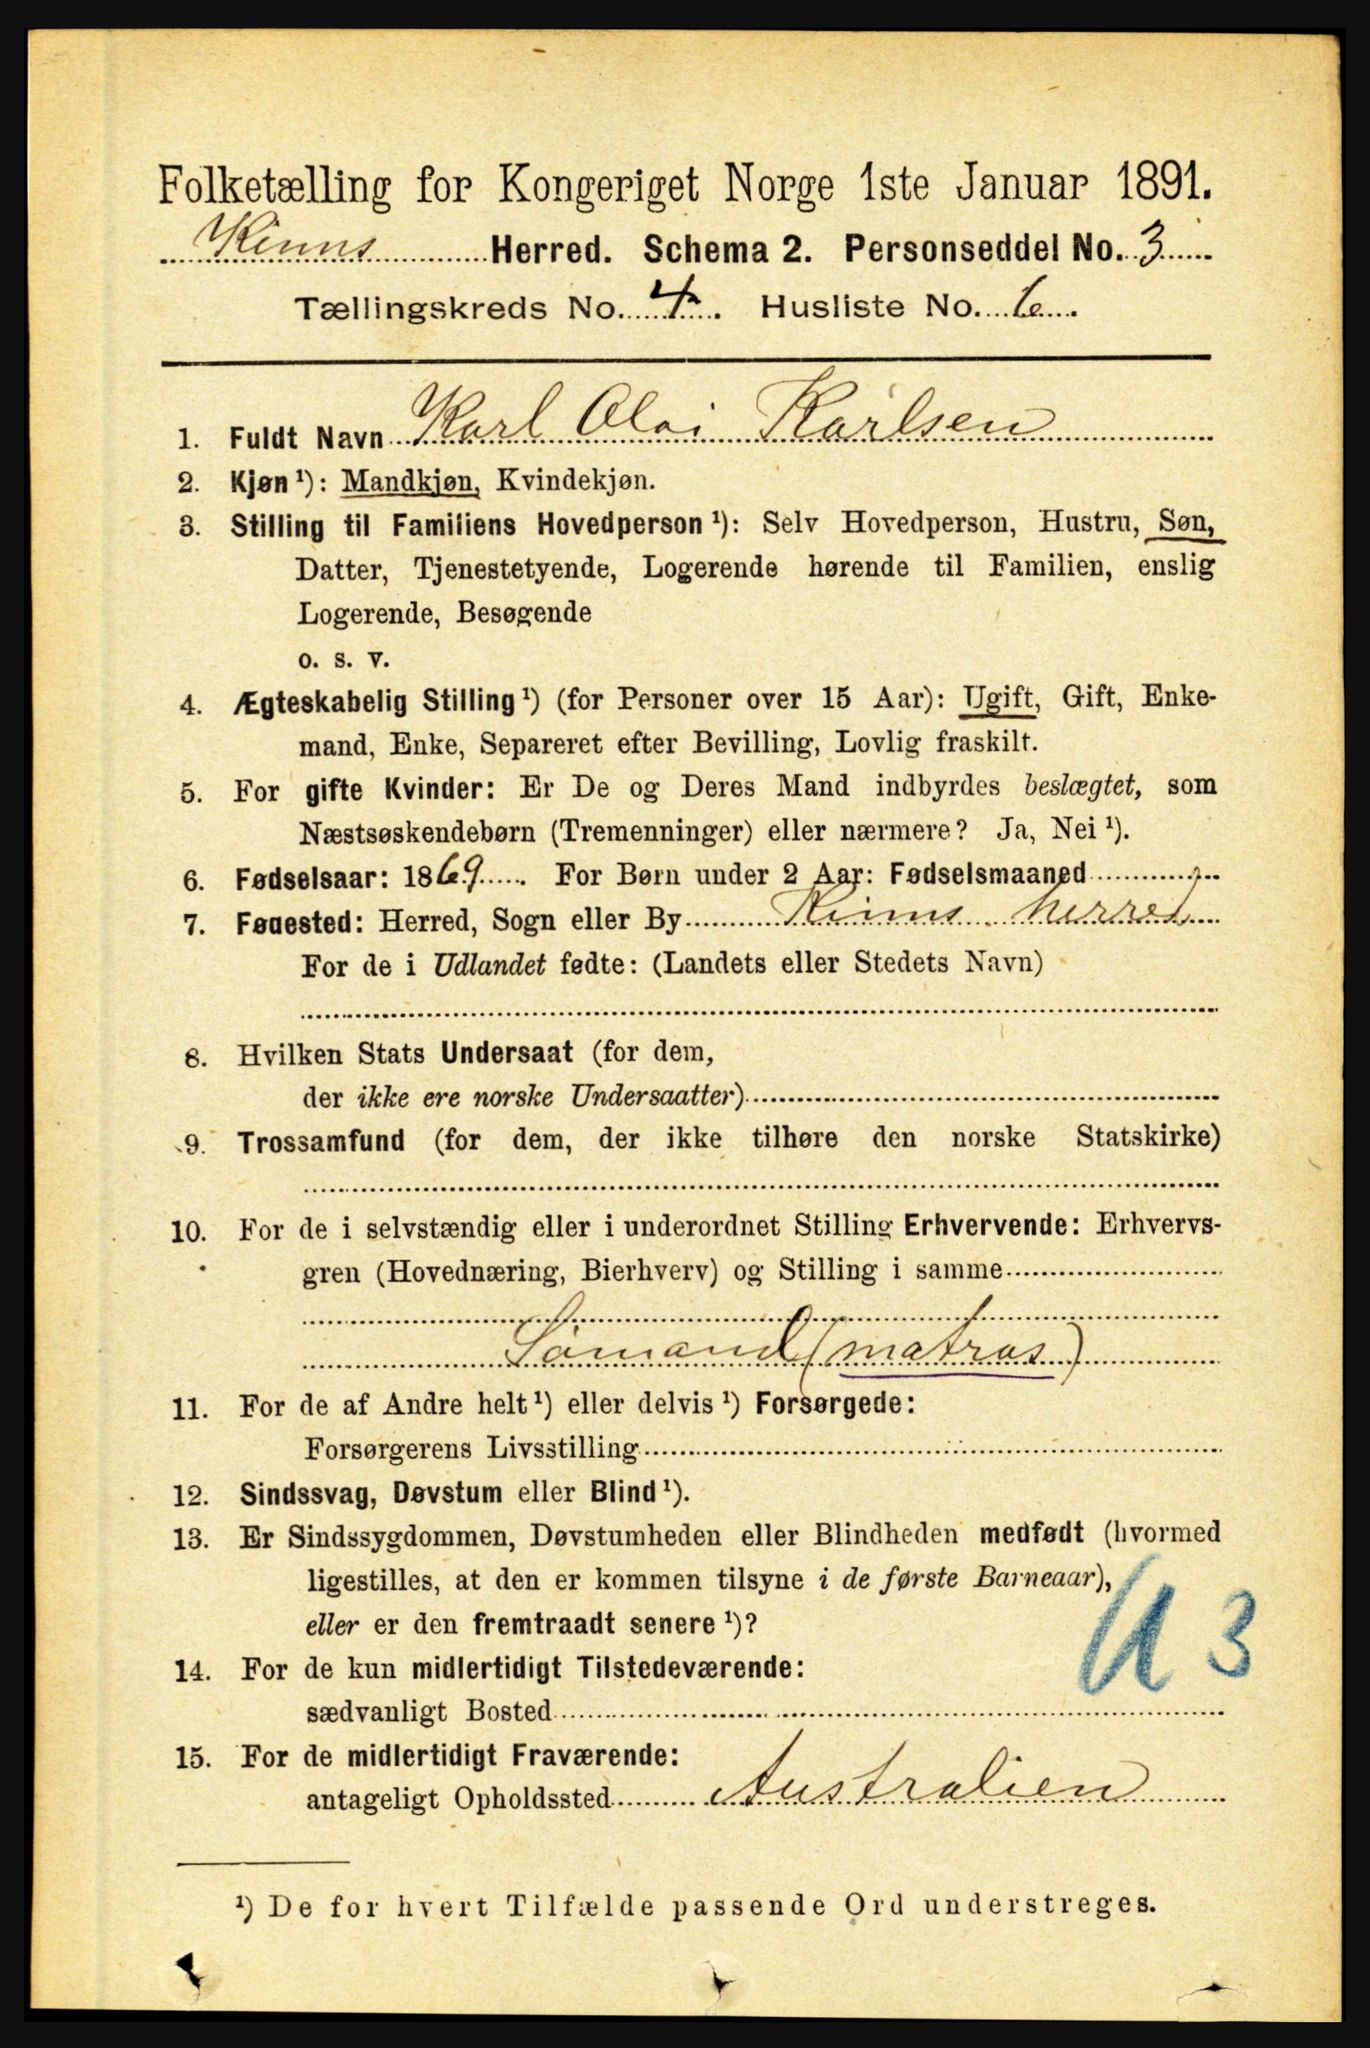 Folketælling for Kongeriget Norge 1ste Januar 1891.
Kinns Herred. Schema 2. Personseddel No. 3
Tællingskreds No. 4. Husliste No. 6.
1. Fuldt Navn Karl Olai Karlsen
2. Kjøn ¹): Mandkjøn, Kvindekjøn.
3. Stilling til Familiens Hovedperson ¹): Selv Hovedperson, Hustru, Søn,
Datter, Tjenestetyende, Logerende hørende til Familien, enslig
Logerende, Besøgende
o. s. v.
4. Ægteskabelig Stilling ¹) (for Personer over 15 Aar): Ugift, Gift, Enke-
mand, Enke, Separeret efter Bevilling, Lovlig fraskilt.
5. For gifte Kvinder: Er De og Deres Mand indbyrdes beslægtet, som
Næstsøskendebørn (Tremenninger) eller nærmere? Ja, Nei ¹).
6. Fødselsaar: 1869. For Børn under 2 Aar: Fødselsmaaned
7. Fødested: Herred, Sogn eller By Kinns herred
For de i Udlandet fødte: (Landets eller Stedets Navn)
8. Hvilken Stats Undersaat (for dem,
der ikke ere norske Undersaatter)
9. Trossamfund (for dem, der ikke tilhøre den norske Statskirke)
10. For de i selvstændig eller i underordnet Stilling Erhvervende: Erhvervs-
gren (Hovednæring, Bierhverv) og Stilling i samme
Sømand (matros)
11. For de af Andre helt ¹) eller delvis ¹) Forsørgede:
Forsørgerens Livsstilling
12. Sindssvag, Døvstum eller Blind ¹).
13. Er Sindssygdommen, Døvstumheden eller Blindheden medfødt (hvormed
ligestilles, at den er kommen tilsyne i de første Barneaar),
eller er den fremtraadt senere ¹)?
U 3
14. For de kun midlertidigt Tilstedeværende:
sædvanligt Bosted
15. For de midlertidigt Fraværende:
antageligt Opholdssted Australien
¹) De for hvert Tilfælde passende Ord understreges.